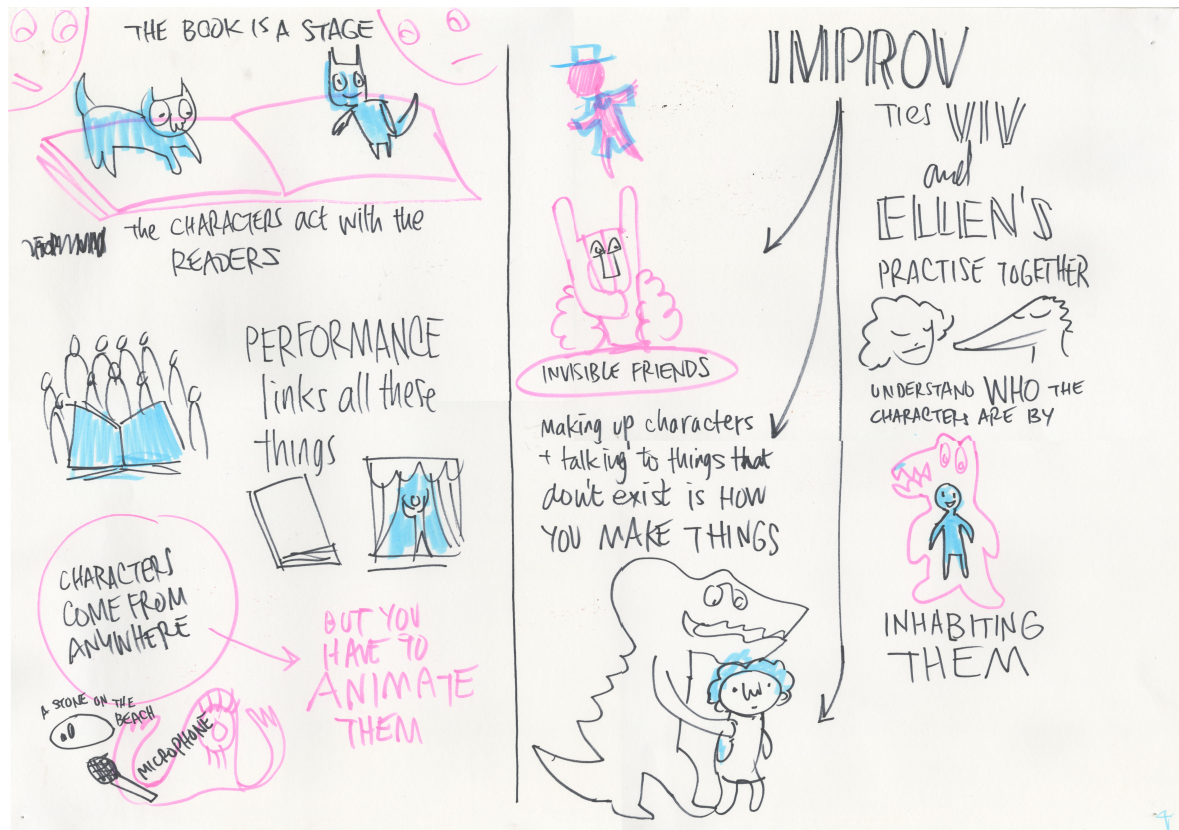 THE BOOK IS A STAGE
the CHARACTERS act with the
READERS
PERFORMANCE
links all these
things
CHARACTERS
COME FROM
ANYWHERE
BUT YOU
HAVE TO
ANIMATE
THEM
A STONE ON THE
BEACH
MICROPHONE
INVISIBLE FRIENDS
making up characters
+ talking to things that
don't exist is HOW
YOU MAKE THINGS
IMPROV
TIES VIV
and
ELLEN'S
PRACTISE TOGETHER
UNDERSTAND WHO THE
CHARACTERS ARE BY
INHABITING
THEM